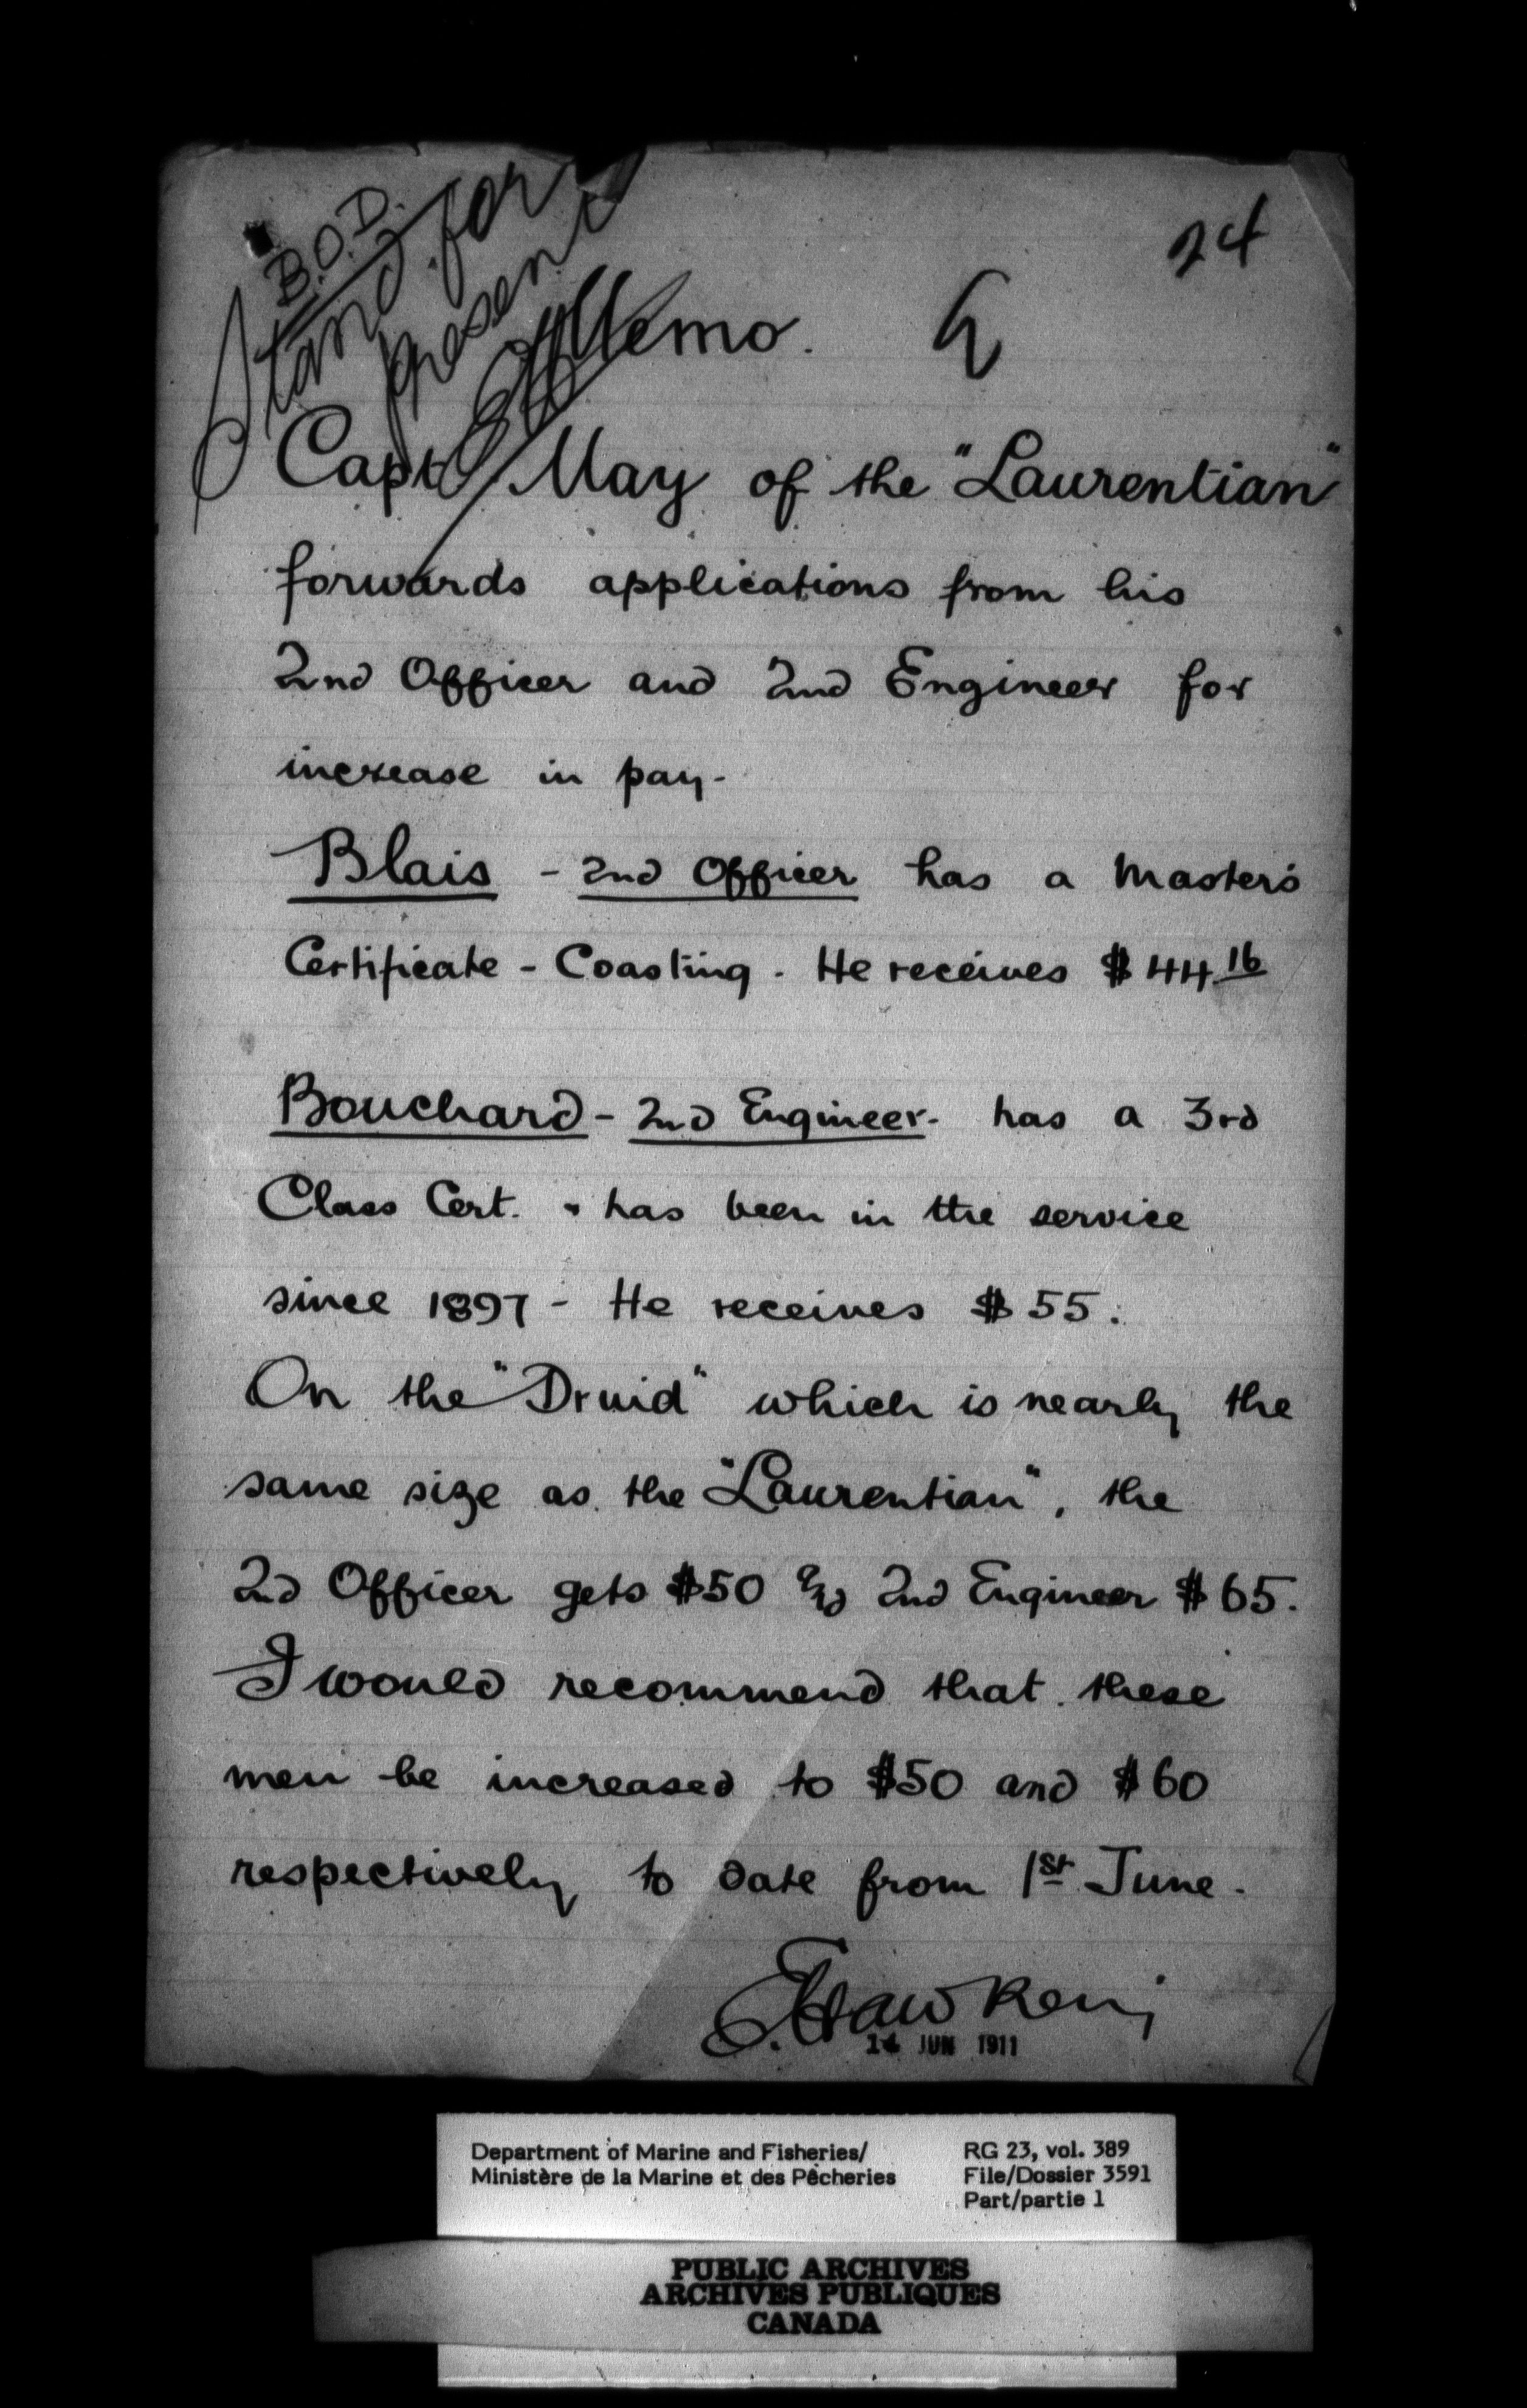 24
B.O.D.
Stand for
present
Memo.
Capt May of the "Laurentian"
forwards applications from his
2nd Officer and 2nd Engineer for
increase in pay-
Blais - 2nd Officer has a Master's
Certificate - Coasting. He receives $44 16
Bouchard - 2nd Engineer - has a 3rd
Class Cert. - has been in the service
since 1897 - He receives $55.
On the "Druid" which is nearly the
same size as the "Laurentian", the
2d Officer gets $50 & 2nd Engineer $65.
I would recommend that these
men be increased to $50 and $60
respectively to date from 1st June.
E. Hawken
14 JUN 1911
Department of Marine and Fisheries/
Ministère de la Marine et des Pêcheries
RG 23, vol. 389
File/Dossier 3591
Part/partie 1
PUBLIC ARCHIVES
ARCHIVES PUBLIQUES
CANADA